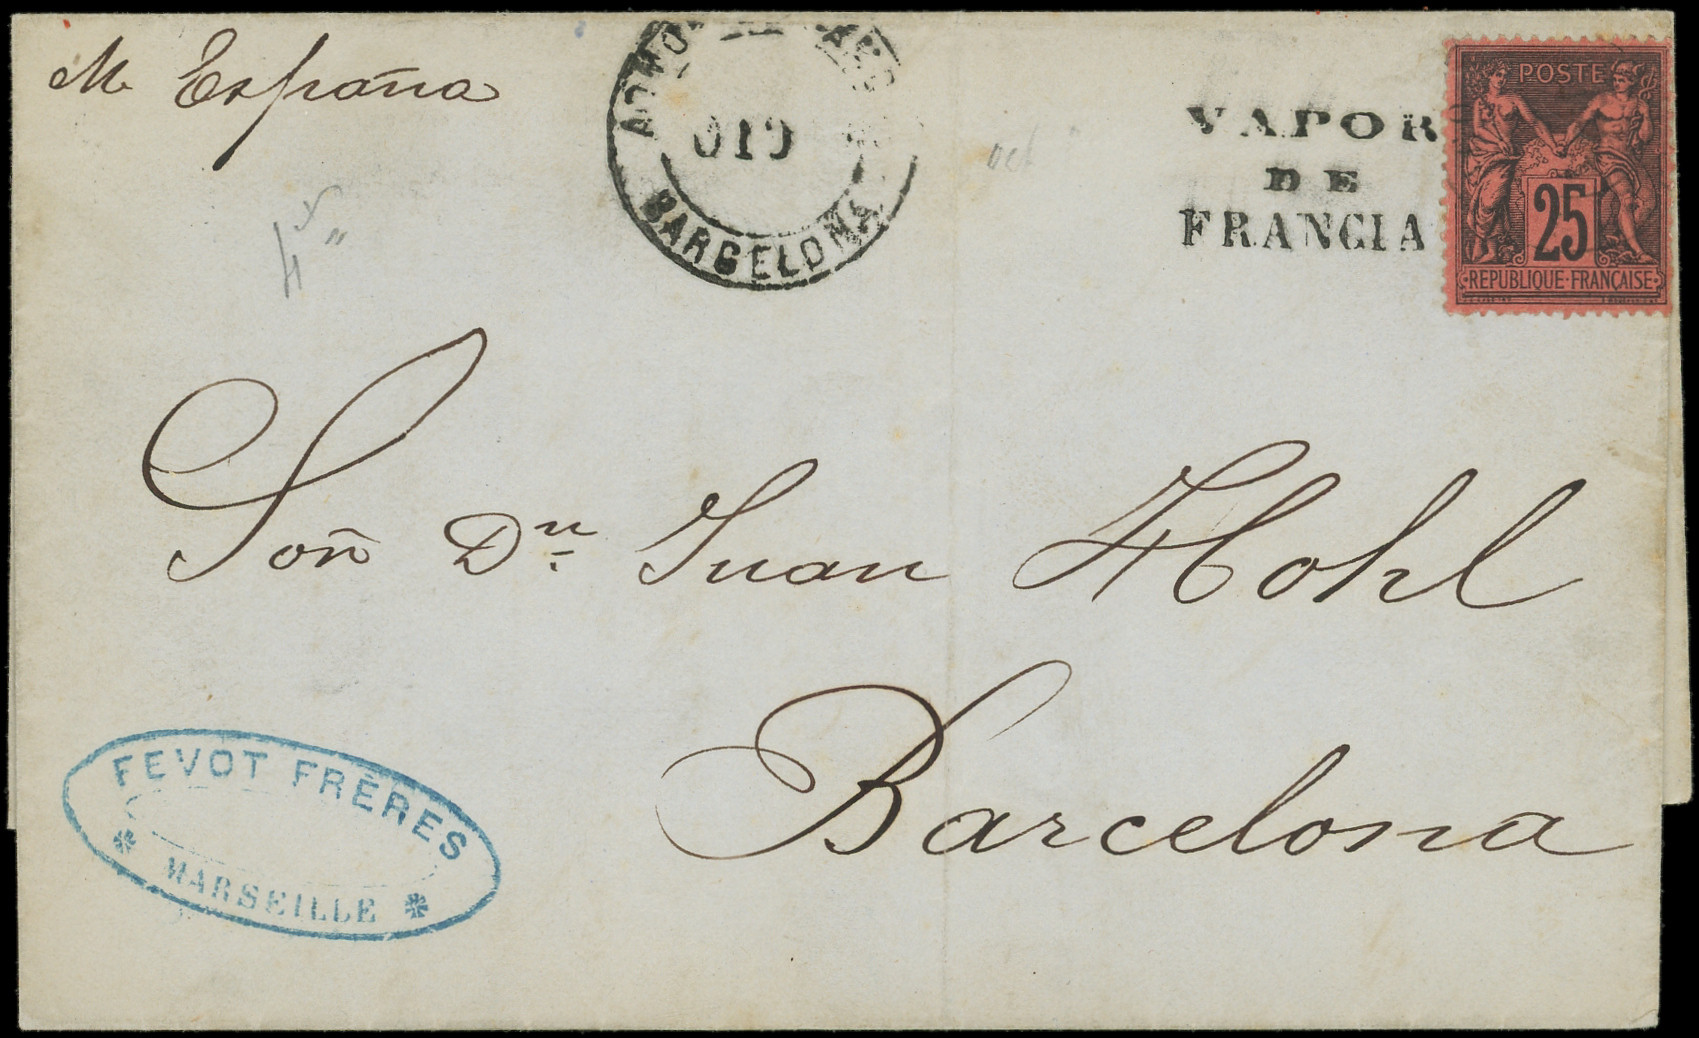 M España
BARCELONA
VAPOR
DE
FRANCIA
POSTE
25
REPUBLIQUE·FRANÇAISE
Señ Dn Juan Hohl
Barcelona
FEVOT FRÈRES
MARSEILLE